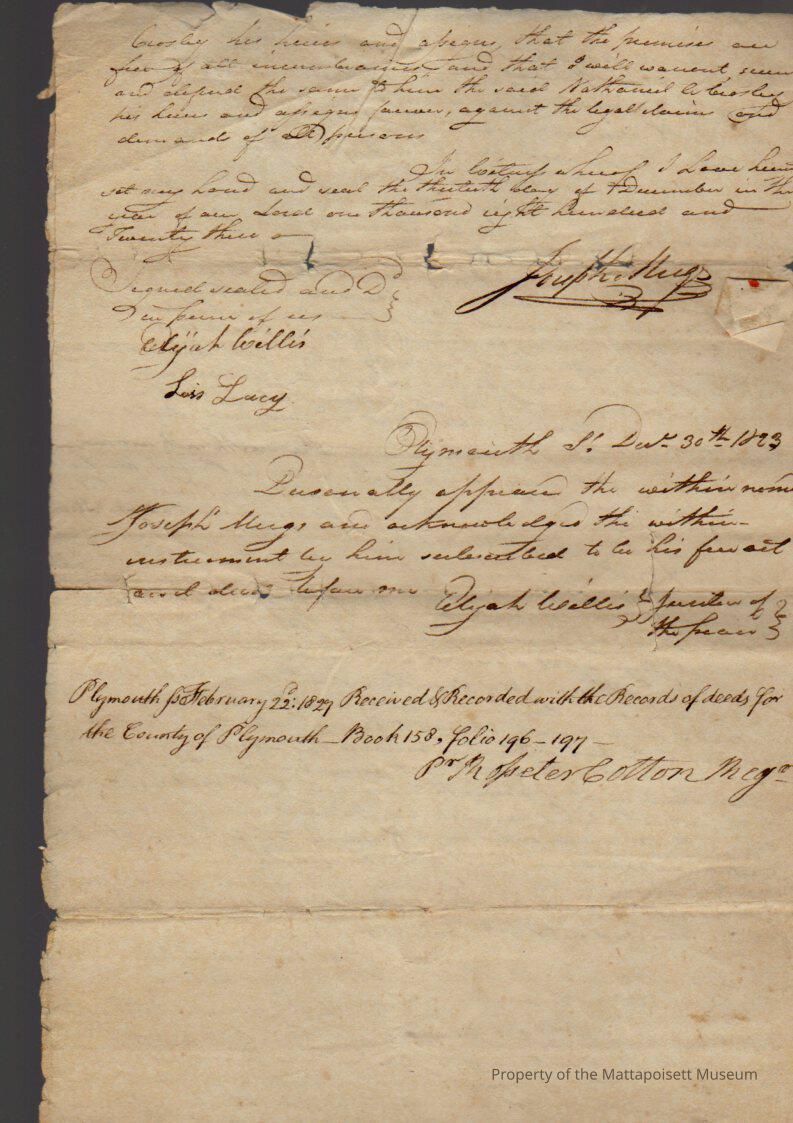 Crosby his heirs and assigns, that the premises are
free of all incumbrances and that I will warrent, secure
and defend the same to him the said Nathaniel C Crosby
his heirs and assigns forever, against the legal claims and
demands of all persons
In Witness whereof I have here
set my hand and seal the thirtieth day of December in the
year of our Lord one thousand eight hundred and
Twenty three
Joseph Meigs
Signed sealed and D
In presence of us
Elijah Willis
Lois Lacy
Plymouth Ss Decr 30th 1823
Personally appeared the within name
Joseph Meigs and acknowledges the within
instrument by him subscribed to be his free act
and deed before me Elijah Willis Justice of
the peace
Plymouth ss February 22d: 1827 Received & Recorded with the Records of deeds for
the County of Plymouth - Book 158, folio 196 - 197 -
Pr Rosseter Cotton Regr
Property of the Mattapoisett Museum